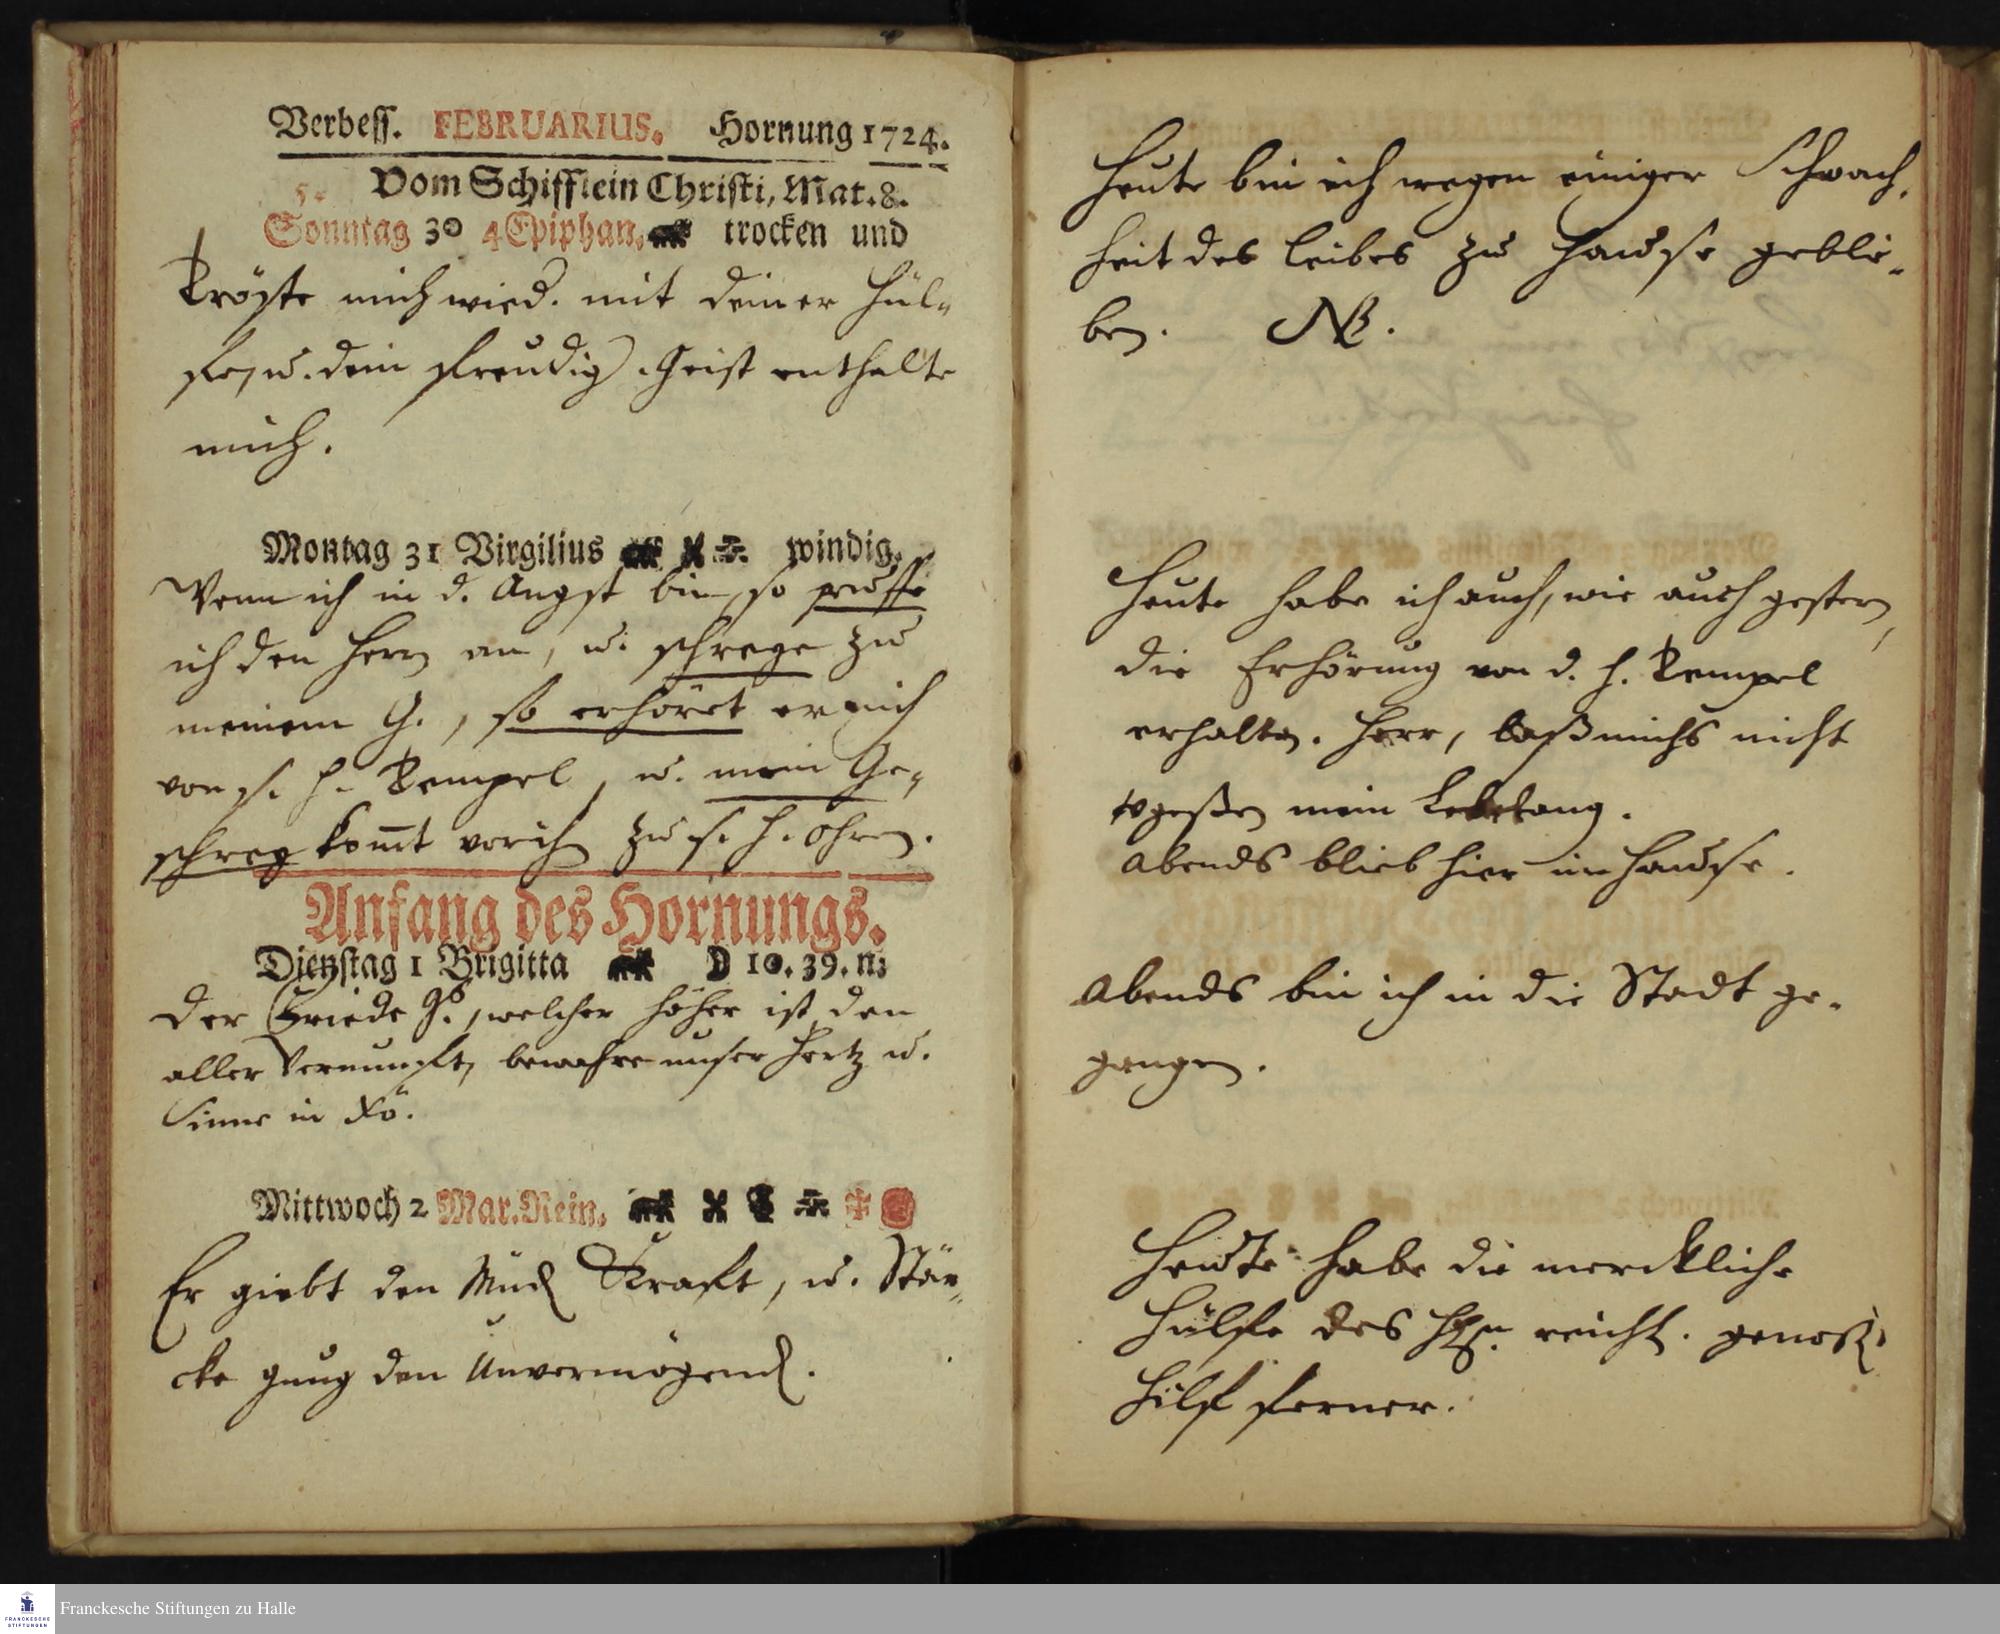 Verbess. FEBRUARIUS. Hornung 1724.
5. Vom Schifflein Christi, Mat. 8.
Sonntag 30 4 Epiphan. trocken und
Tröste mich wied. mit deiner Hül-
fe, u. dein freudig. Geist enthalte
mich.
Montag 31 Virgilius windig.
Wenn ich in d. Angst bin, so ruffe
ich den Herrn an, u. schreye zu
meinem G., so erhöret er mich
von s. h. Tempel, u. mein Ge-
schrey komt vor ihn zu s. h. Ohren.
Anfang des Hornungs.
Dienstag 1 Brigitta D 10. 39. n:
Der Friede G., welcher höher ist den
aller Vernunfft, bewahre unser Hertz u.
Sinne in Xo.
Mittwoch 2 Mar. Rein.
Er giebt den Müd Krafft, u. Stär-
cke gnug den Unvermögend.
Heute bin ich wegen einiger Schwach-
heit des Leibes zu Hause geblie-
ben. NB.
Heute habe ich auch, wie auch gestern,
die Erhörung von d. h. Tempel
erhalten. Herr, laß michs nicht
vergeßen mein Lebelang.
Abends blieb hier im Hause.
Abends bin ich in die Stadt ge-
gangen.
Heute habe die merckliche
Hülffe des HErrn reichl. genoßen
Hilf ferner.
Franckesche Stiftungen zu Halle
FRANCKESCHE
STIFTUNGEN